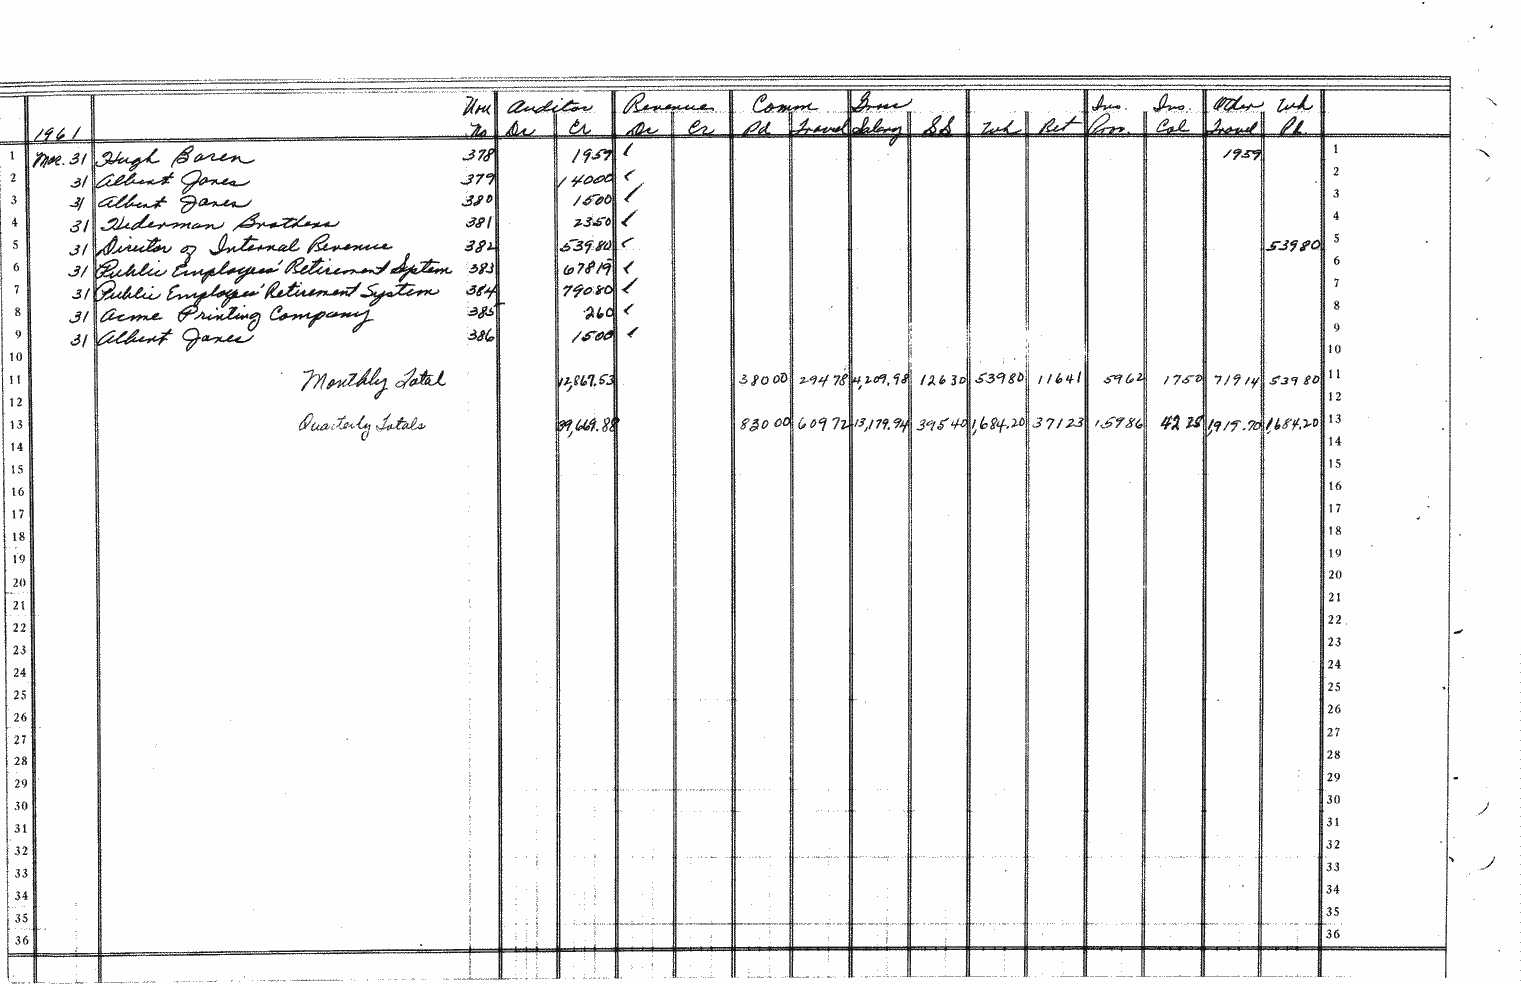 Vou Auditor Revenue Comm Gross Ins. Ins. Other Wh
1961 No Dr Cr Dr Cr Pd Travel Salary SS Wh Ret Prov. Col Travel Pd.
1 Mar. 31 Hugh Boren 378 1959 ✓ 1959 1
2 31 Albert Jones 379 14000 ✓ 2
3 31 Albert Jones 380 1500 ✓ 3
4 31 Hederman Brothers 381 2350 ✓ 4
5 31 Director of Internal Revenue 382 539.80 ✓ 539 80 5
6 31 Public Employees' Retirement System 383 678 19 ✓ 6
7 31 Public Employees' Retirement System 384 790.80 ✓ 7
8 31 Acme Printing Company 385 260 ✓ 8
9 31 Albert Jones 386 1500 ✓ 9
10 10
11 Monthly Total 12,867.53 380 00 294 78 4,209.98 126 30 539 80 116 41 59 62 17 50 719 14 539 80 11
12 12
13 Quarterly Totals 39,669.88 830 00 609 72 13,179.94 395 40 1,684.20 371 23 159 86 42 25 1,915.70 1,684.20 13
14 14
15 15
16 16
17 17
18 18
19 19
20 20
21 21
22 22
23 23
24 24
25 25
26 26
27 27
28 28
29 29
30 30
31 31
32 32
33 33
34 34
35 35
36 36